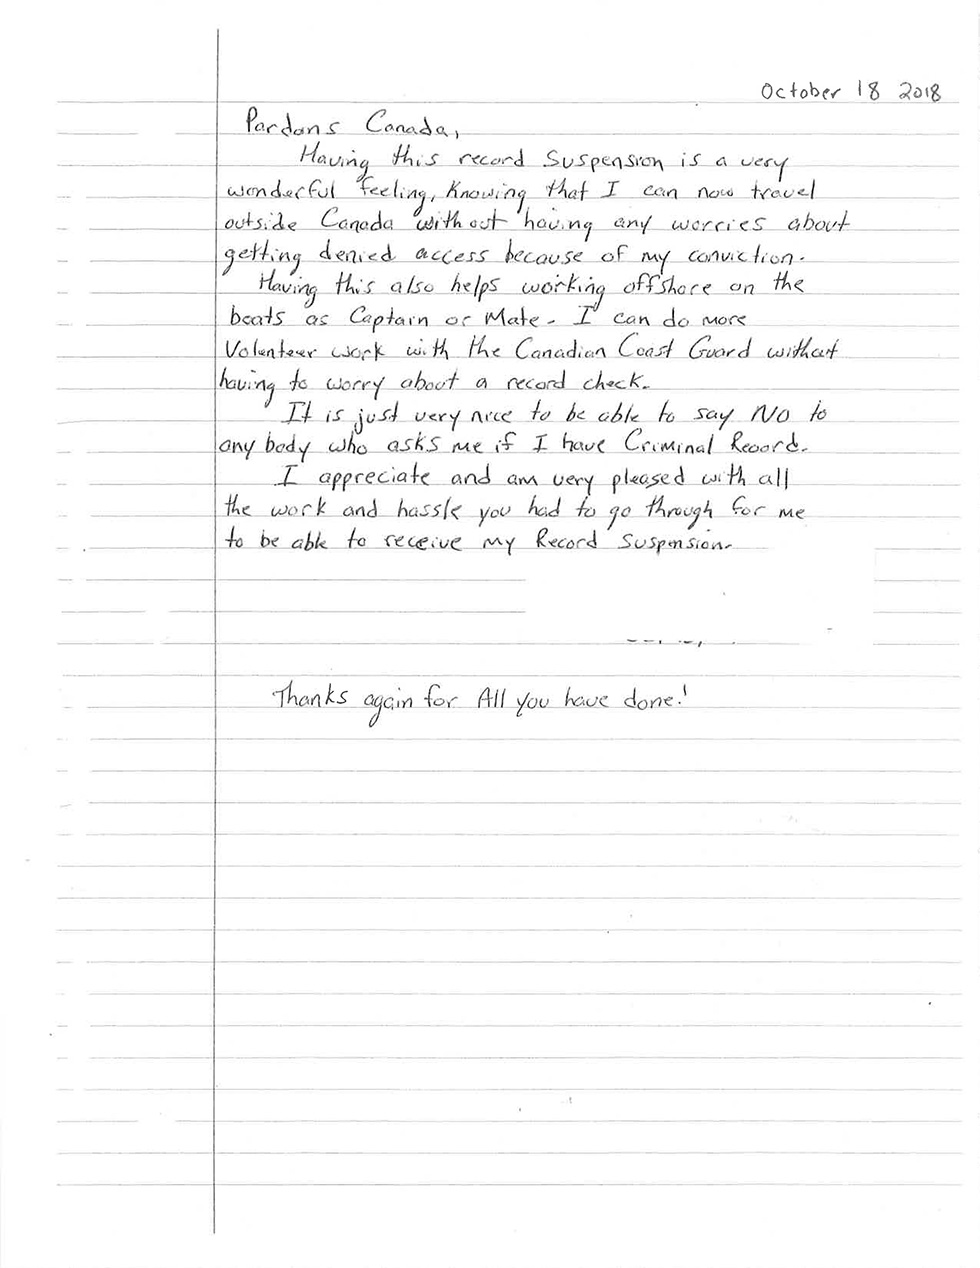 October 18 2018
Pardons Canada,
Having this record suspension is a very
wonderful feeling, Knowing that I can now travel
outside Canada without having any worries about
getting denied access because of my conviction.
Having this also helps working offshore on the
boats as Captain or Mate. I can do more
Volunteer work with the Canadian Coast Guard without
having to worry about a record check.
It is just very nice to be able to say NO to
any body who asks me if I have Criminal Record.
I appreciate and am very pleased with all
the work and hassle you had to go through for me
to be able to receive my Record Suspension.
Thanks again for All you have done!